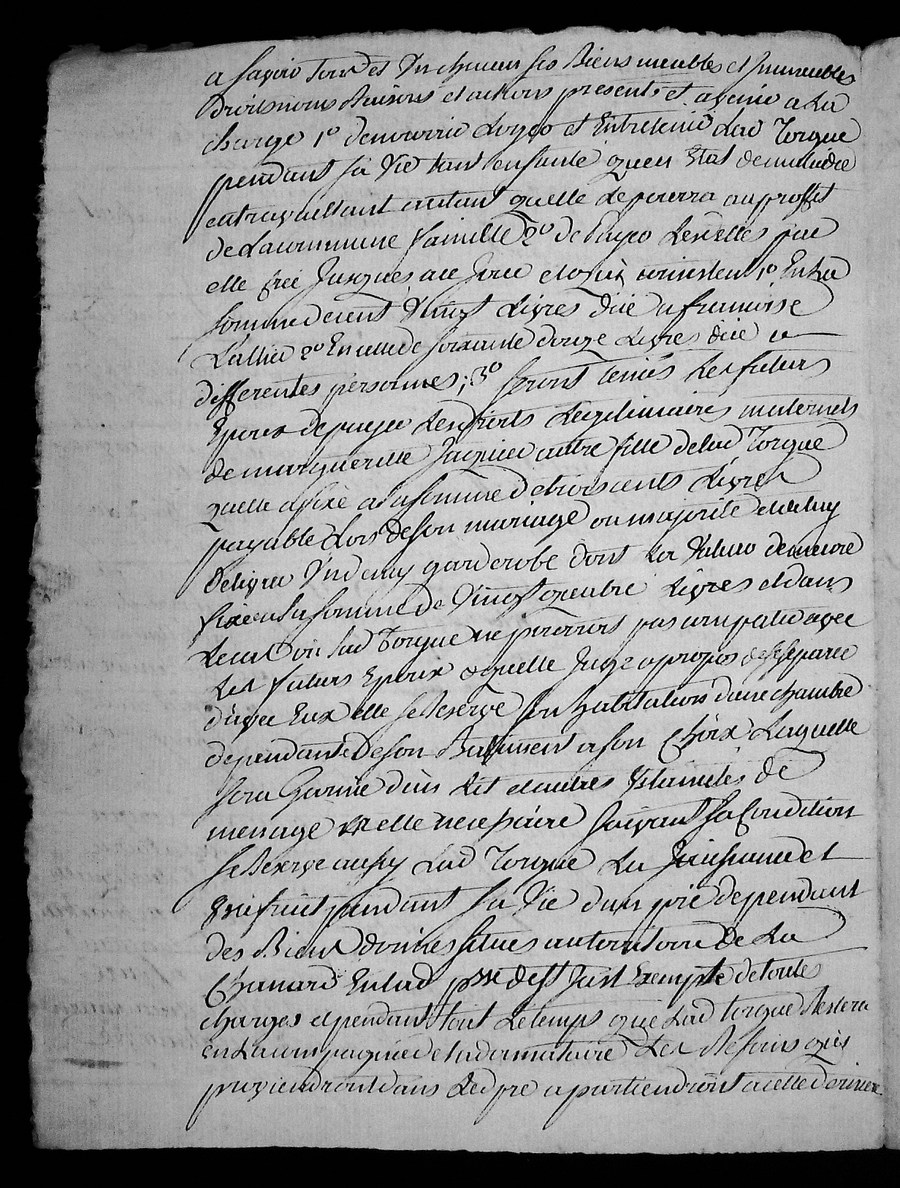 a sçavoir Tous et Un chacun ses Biens meubles et Immeubles
droits noms Raisons et actions presents et avenir a La
charge 1º de nourrir Loger et Entretenir Lad Torgue
pendant sa Vie tant en santé quen Etat de maladie
en travaillant autant quelle le pourra au proffit
de La commune famille 2º de payer Les dettes par
elle crée Jusques a ce Jour et consistent 1º En La
somme de cent Vingt Livres düe a françoise
Lallier 2º En celle de soixante douze Livres düe a
differentes personnes; 3º seront tenus Les futurs
Epoux de payer Les droits Légitimaires maternels
de margueritte autre fille de lad Torgue
quelle a fixé a La somme de trois cents Livres
payable Lors de son mariage ou majorité et de luy
Delivrer Un demy garderobe dont La Valeur demeure
fixée a La somme de Vingt quatre Livres et dans
Le cas où Lad Torgue ne pourrois pas compatir avec
Les futurs Epoux et quelle Juge apropos de se separer
d'avec Eux elle se Reserve son habitation dune chambre
dependante De son Batiment a son Choix Laquelle
sera Garnie d'un Lit et autres Ustanciles de
menage a elle necessaire suivant sa Condition
se Reserve aussy Lad Torgue La Jouissance et
Usufruit pendant sa Vie d'un pré dependant
des Biens donnés situés au territoire De La
Chanard En lad psse de St Just Exempte de toutes
charges et pendant tout Le temps que Lad torgue Restera
en La compagnie de La donnataire Les Revenus quis
proviendront dans Led pré apartiendront a cette derniere